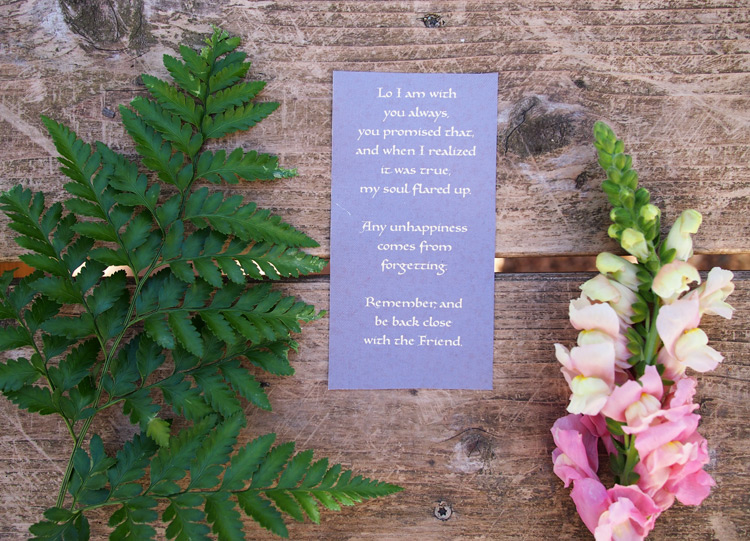 Lo I am with
you always,
you promised that,
and when I realized
it was true,
my soul flared up.
Any unhappiness
comes from
forgetting.
Remember, and
be back close
with the Friend.